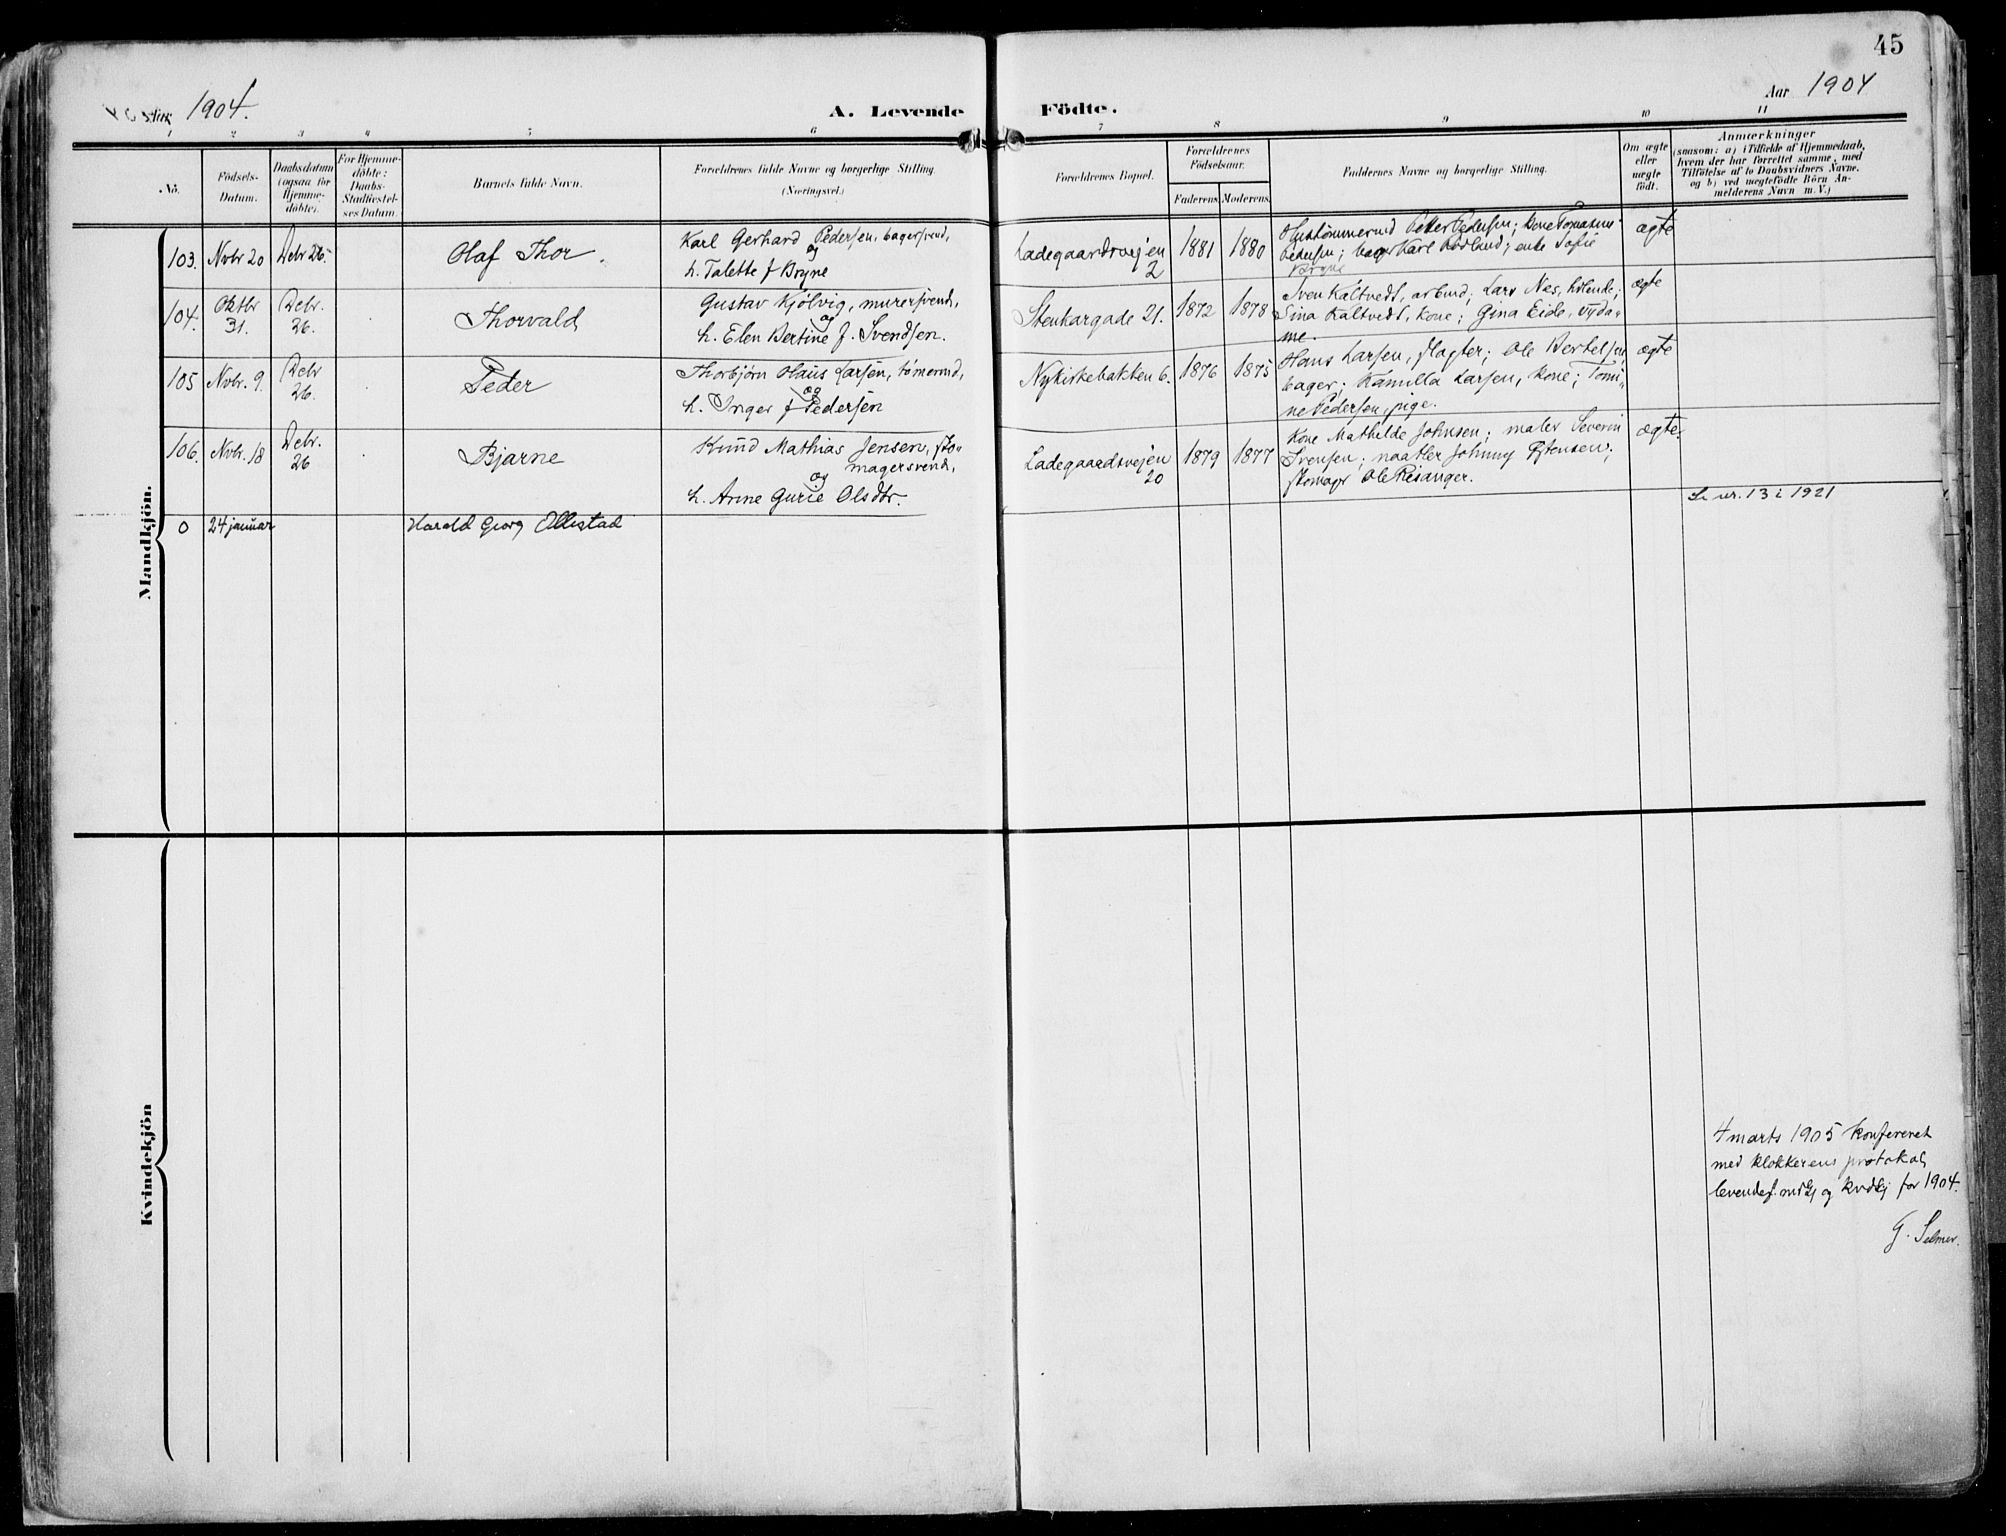 45
1904.
A. Levende Födte.
Aar 1904
1 2 3 4 5 6 7 8 9 10 11
No.
Födsels-Datum.
Daabsdatum (ogsaa for Hjemmedöbte).
For Hjemmedöbte: Daabs-Stadfæstelses Datum.
Barnets fulde Navn.
Forældrenes fulde Navne og borgerlige Stilling. (Næringsvei.)
Forældrenes Bopæl.
Forældrenes Födselsaar.
Faderens. Moderens.
Faddernes Navne og borgerlige Stilling.
Om ægte eller uægte födt.
Anmærkninger
(saasom: a) i Tilfælde af Hjemmedaab, hvem der har forrettet samme, med Tilföielse af to Daabsvidners Navne, og b) ved uægtefödte Börn Anmelderens Navn m. V.)
Mandkjön.
103. Novbr 20 Debr 26. Olaf Thor.
Karl Gerhard Pedersen, bagersvend,
og
h. Talette f Bryne
Ladegaardsvejen
2
1881 1880
Hustømmermd Petter Pedersen; kone Tomasine
Pedersen; bager Karl Rodland; enke Sofie
Bryne
ægte
104. Oktbr 31. Debr. 26. Thorvald
Gustav Kjölvig, murersvend,
og
h. Elen Bertine f. Svendsen.
Stenkargade 21. 1872 1878
Sven Kaltvedt, arbmd; Lars Nes,
Sina Kaltvedt, kone; Gina Eide, syda-
me.
ægte
105 Novbr. 9. Debr 26. Peder
Thorbjörn Olaus Larsen, tömermd,
og
h. Inger f Pedersen
Nykirkebakken 6. 1876 1875
Hans Larsen, slagter; Ole Bertelsen,
bager; Kamilla Larsen, kone; Tomi-
ne Pedersen, pige.
ægte
106. Novbr. 18 Debr. 26 Bjarne
Knud Mathias Jensen, sko-
magersvend,
og
h. Anne Gurie Olsdtr.
Ladegaardsvejen
20
1879 1877
Kone Mathilde Johnsen; maler Severin
Svensen; naatler Johnny
skomagr Ole Risanger.
ægte.
0 24 januar Harald Georg Ollestad
Se nr. 13 i 1921
Kvindekjön
4 marts 1905 konfereret
med klokkerens protokol,
levendef. mdkj og kvdkj for 1904.
G. Selmer.